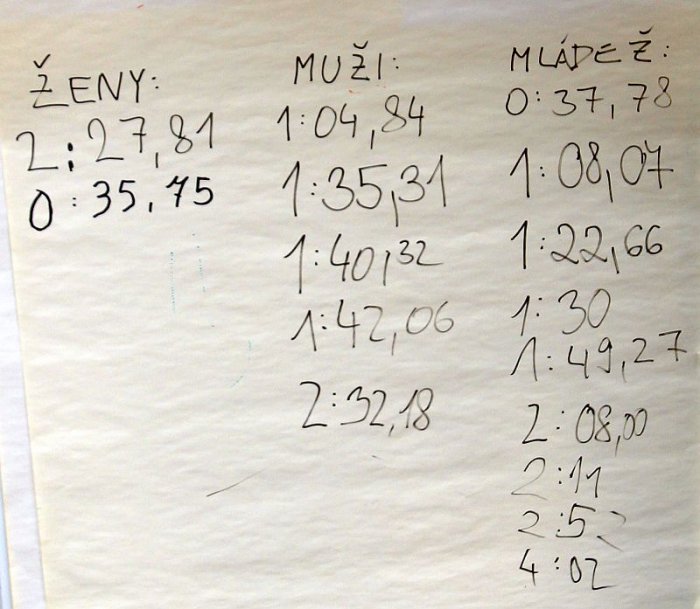 ŽENY:
2:27,81
0:35,75
MUŽI:
1:04,84
1:35,31
1:40,32
1:42,06
2:32,18
MLÁDEŽ:
0:37,78
1:08,07
1:22,66
1:30
1:49,27
2:08,00
2:11
4:02